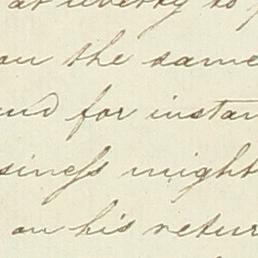 at liberty to
on the same
and for instan
siness might
on his return